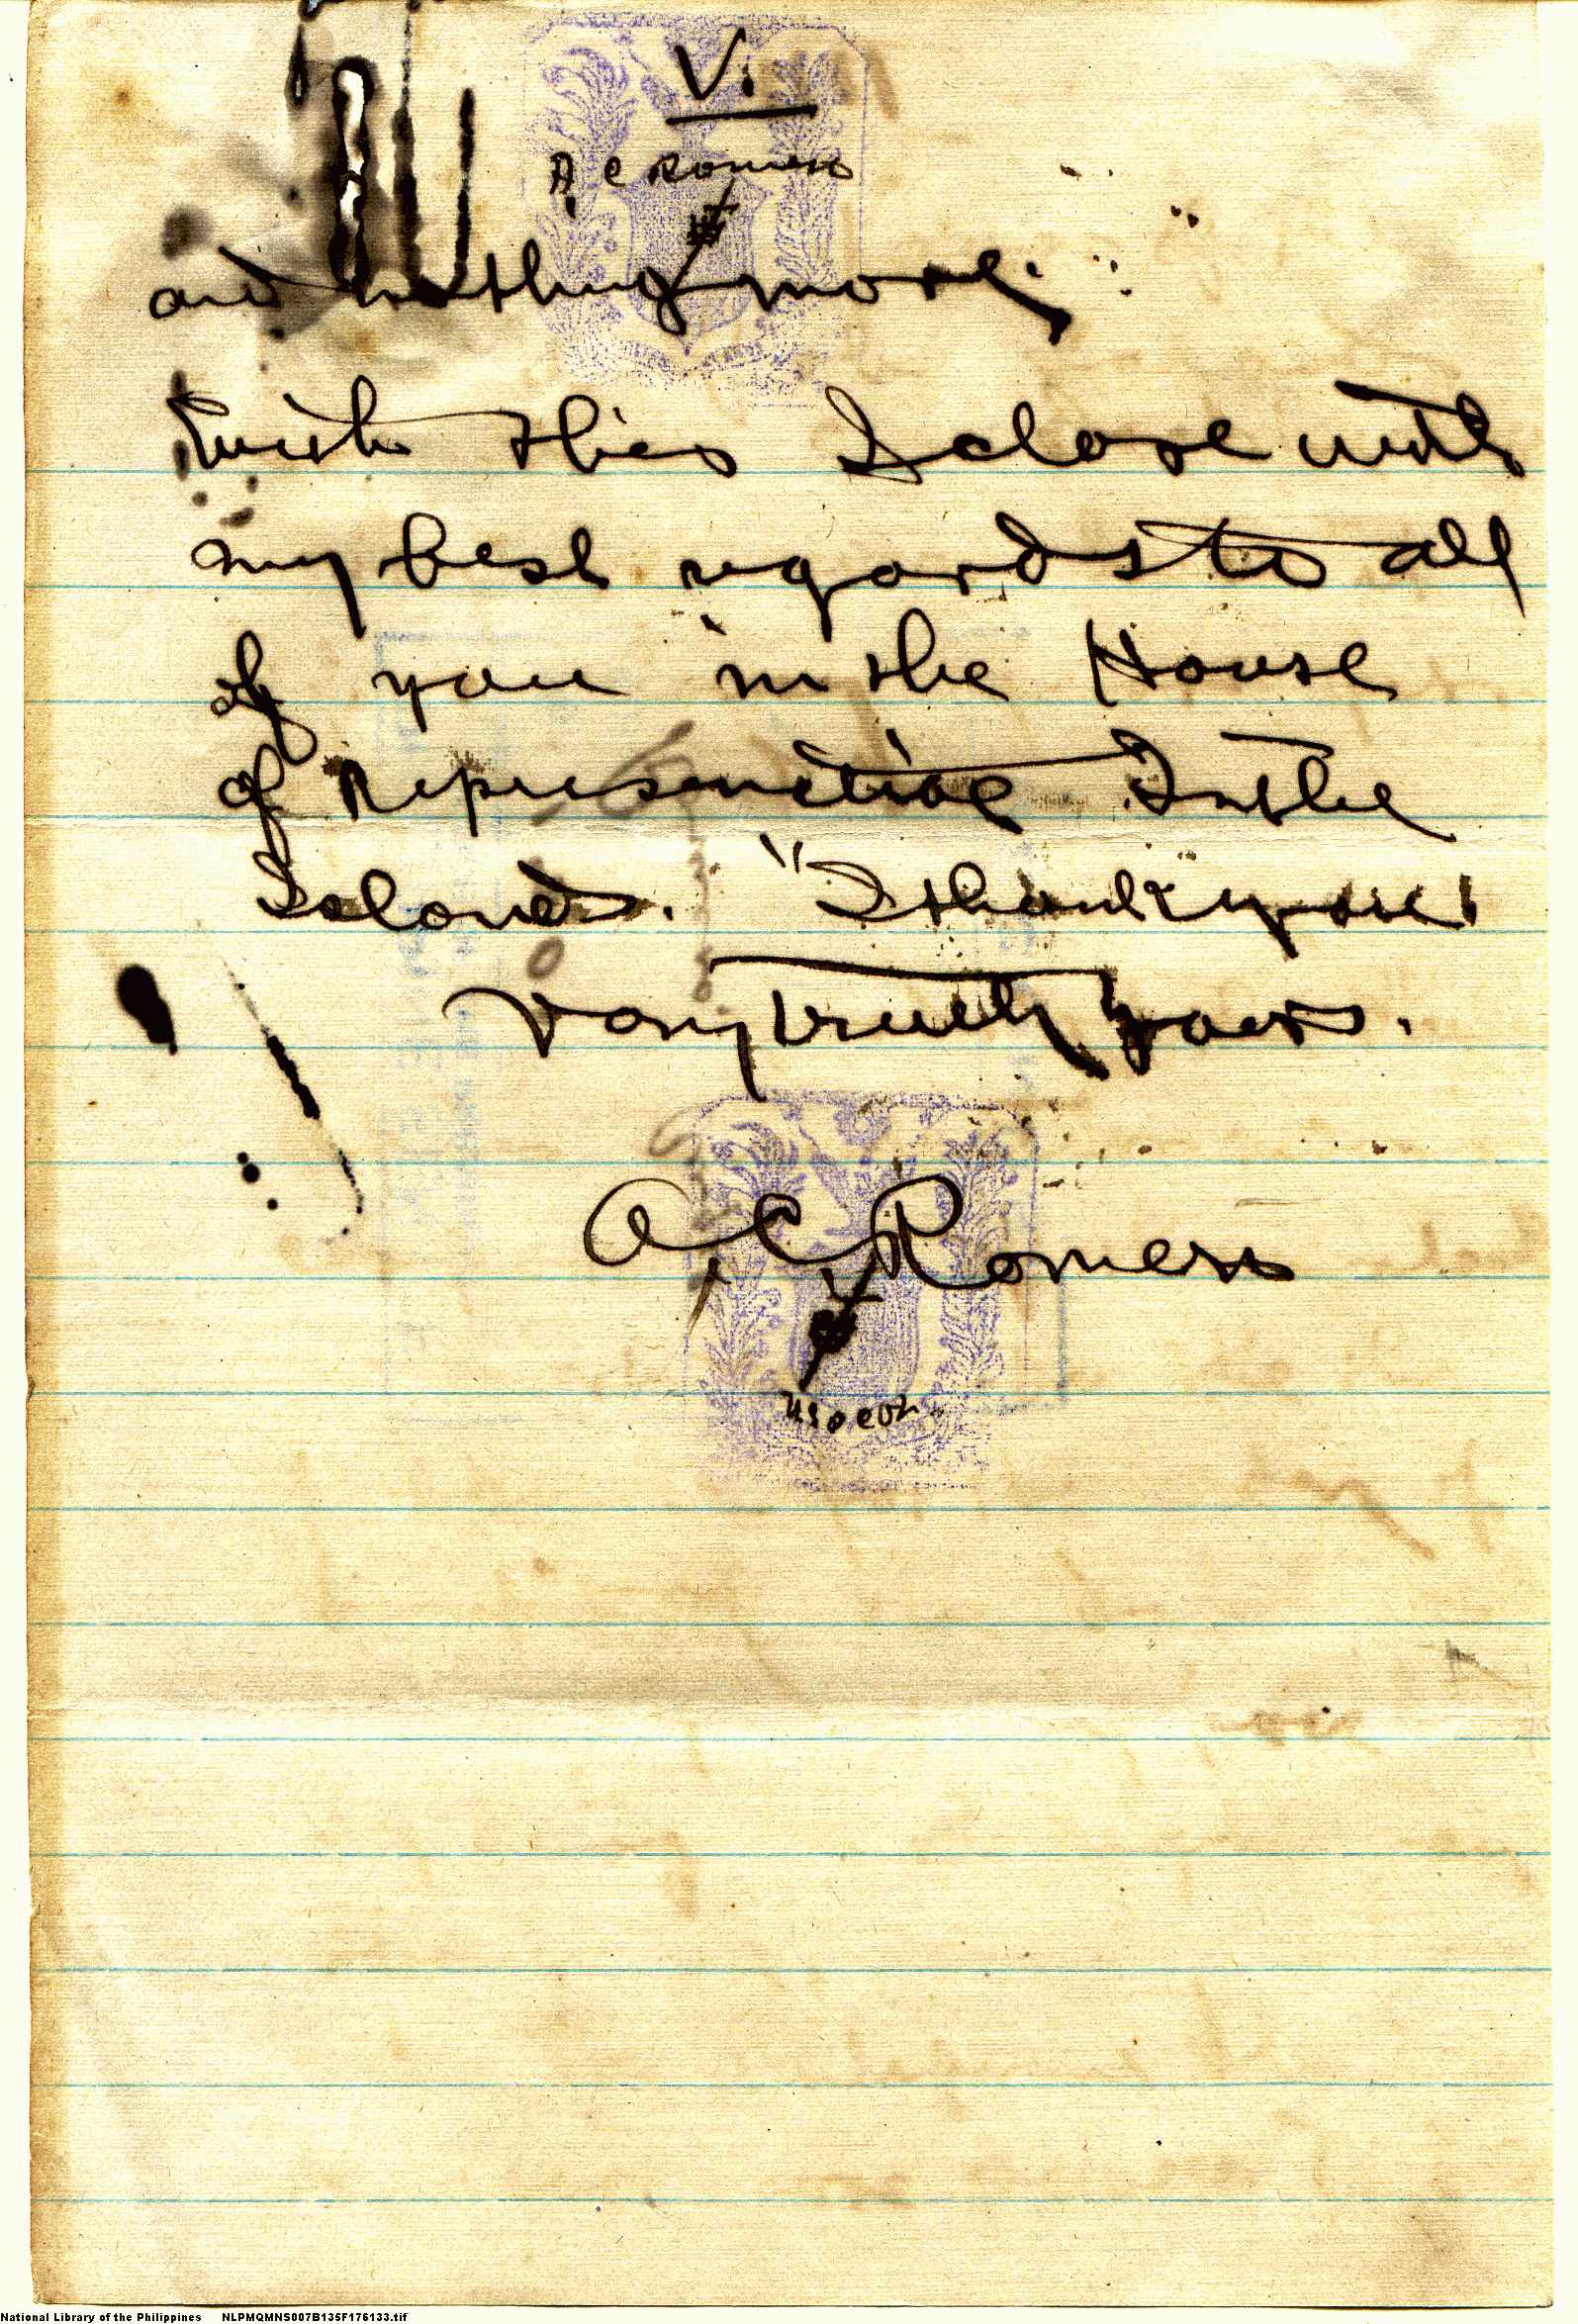 V.
A. C Romero
and nothing more;
With this I close with
my best regards to all
of you in the House
of Representive In the
Island. "I thank you"
Very truly yours.
A. C. Romero
National Library of the Philippines NLPMQMNS007B135F176133.tif